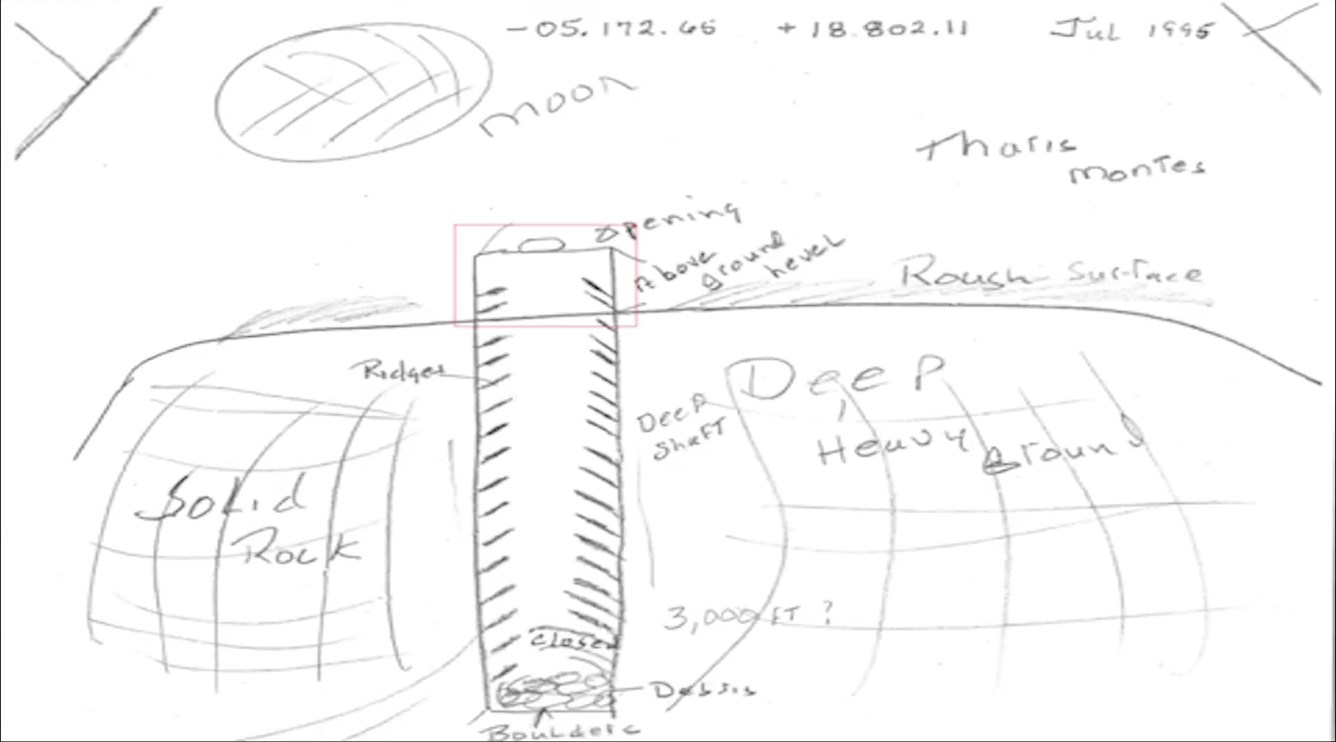 -05.172.65 +18.802.11 Jul 1995
moon
Tharis
montes
Opening
Above
ground
Level
Rough Surface
Ridges
Deep
Shaft
Deep
Heavy Ground
Solid
Rock
3,000 FT ?
Closed
Debris
Boulders